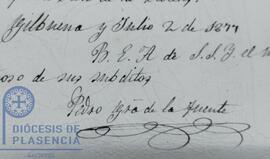 Gilbuena y Julio 2 de 1877
B. E. A de S. S. Y. el m
oso de sus subditos
Pedro Grã de la Fuente
DIÓCESIS DE
PLASENCIA